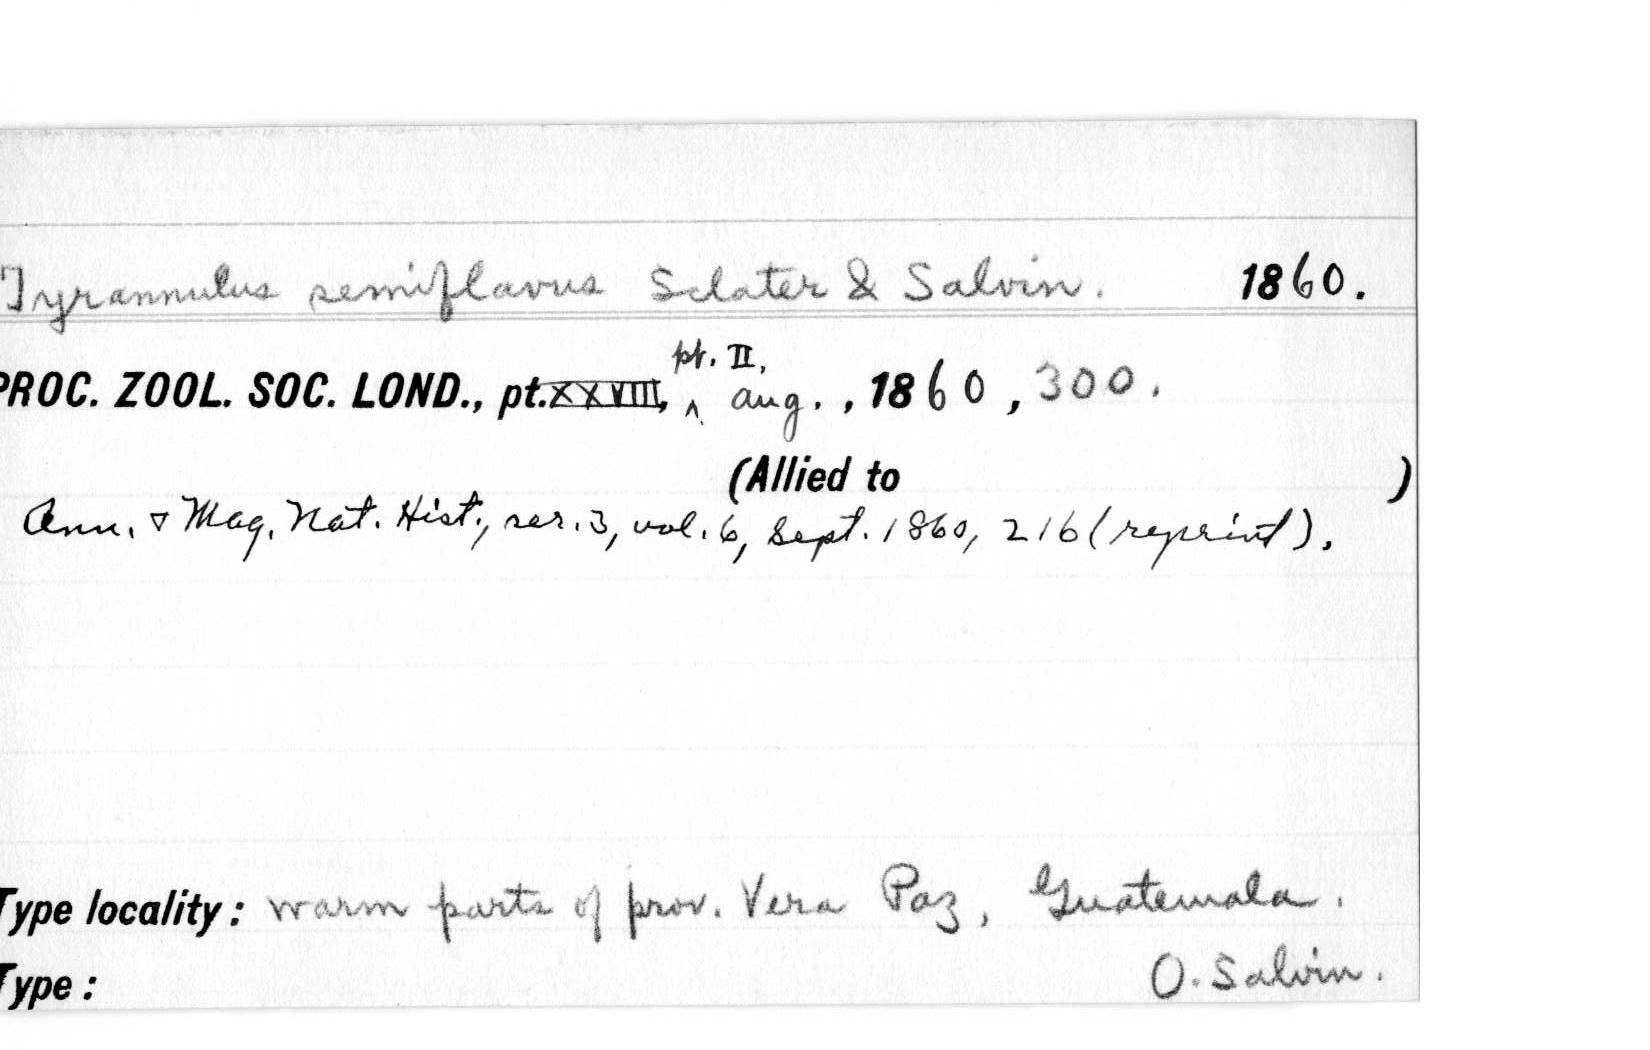 Tyrannulus semiflavus Sclater & Salvin. 1860.
pt. II,
PROC. ZOOL. SOC. LOND., pt. XXVIII, ^ Aug. , 1860 , 300.
(Allied to )
Ann. & Mag. Nat. Hist., ser. 3, vol. 6, Sept. 1860, 216 (reprint).
Type locality: warm parts of prov. Vera Paz, Guatemala.
O. Salvin.
Type: